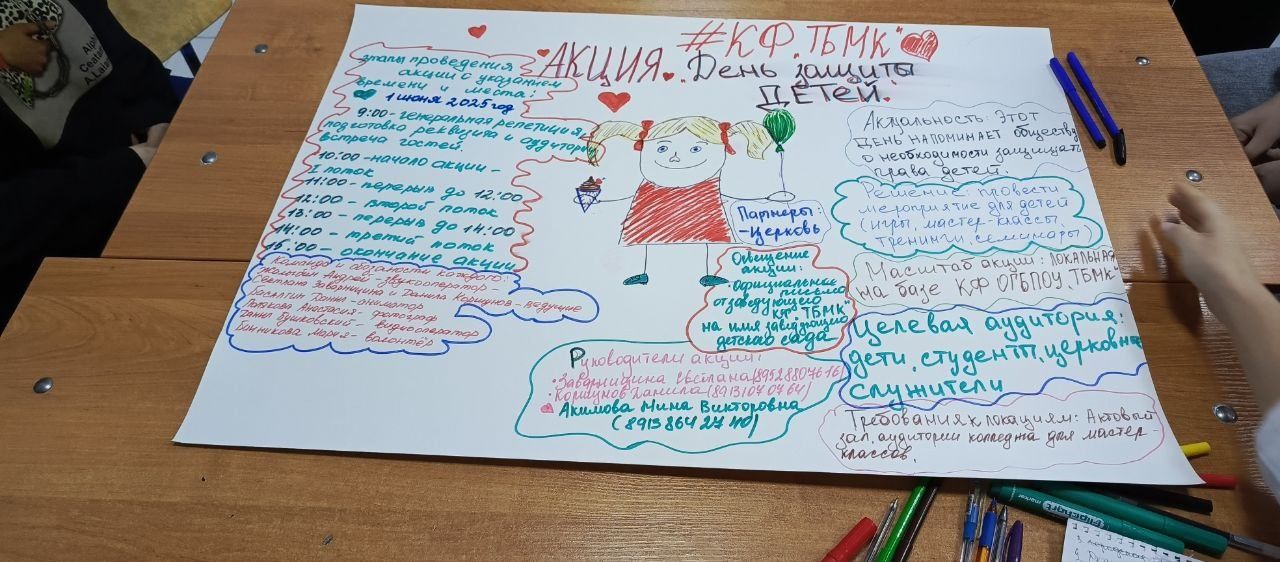 #КФ„ТБМК"
АКЦИЯ. День защиты
ДЕТЕЙ.
этапы проведения
акции с указанием
времени и места:
1 июня 2025 год
9:00 - генеральная репетиция,
подготовка реквизита и аудитории
встреча гостей.
10:00 - начало акции -
I поток
11:00 - перерыв до 12:00
12:00 - второй поток
13:00 - перерыв до 14:00
14:00 - третий поток
15:00 - окончание акции
Команда обязаности каждого:
Андрей - звукооператор
Светлана Заварницина и Данила Коршунов - ведущие
Данил - аниматор
Анастасия - фотограф
Данил - видеооператор
Мария - волонтёр
Партнеры:
-Церковь
Освещение
акции:
Официальное
письмо
от заведующего
КФ„ТБМК"
на имя заведующего
детского сада
Руководители акции:
• Заварницина Светлана (89528807616)
• Коршунов Данила (89131070764)
Акимова Мина Викторовна
(89138642740)
Актуальность: Этот
день напоминает обществу
о необходимости защищать
права детей.
Решение: провести
мероприятие для детей
(игры, мастер-классы,
тренинги, семинары)
Масштаб акции: ЛОКАЛЬНАЯ
на базе КФ ОГБПОУ „ТБМК"
Целевая аудитория:
дети, студент, церковные
служители
Требования к локациям: Актовый
зал, аудитории колледжа для мастер-
классов.